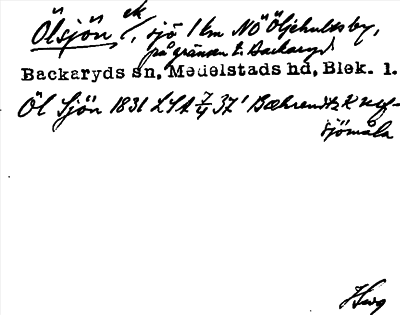 Ölsjön ek /, sjö 1 km NÖ Öljehults by,
på gränsen t. Backaryd
Backaryds sn, Medelstads hd, Blek. l.
Öl Sjön 1831 LSA 37' Bæhrendtz K
sjömåla